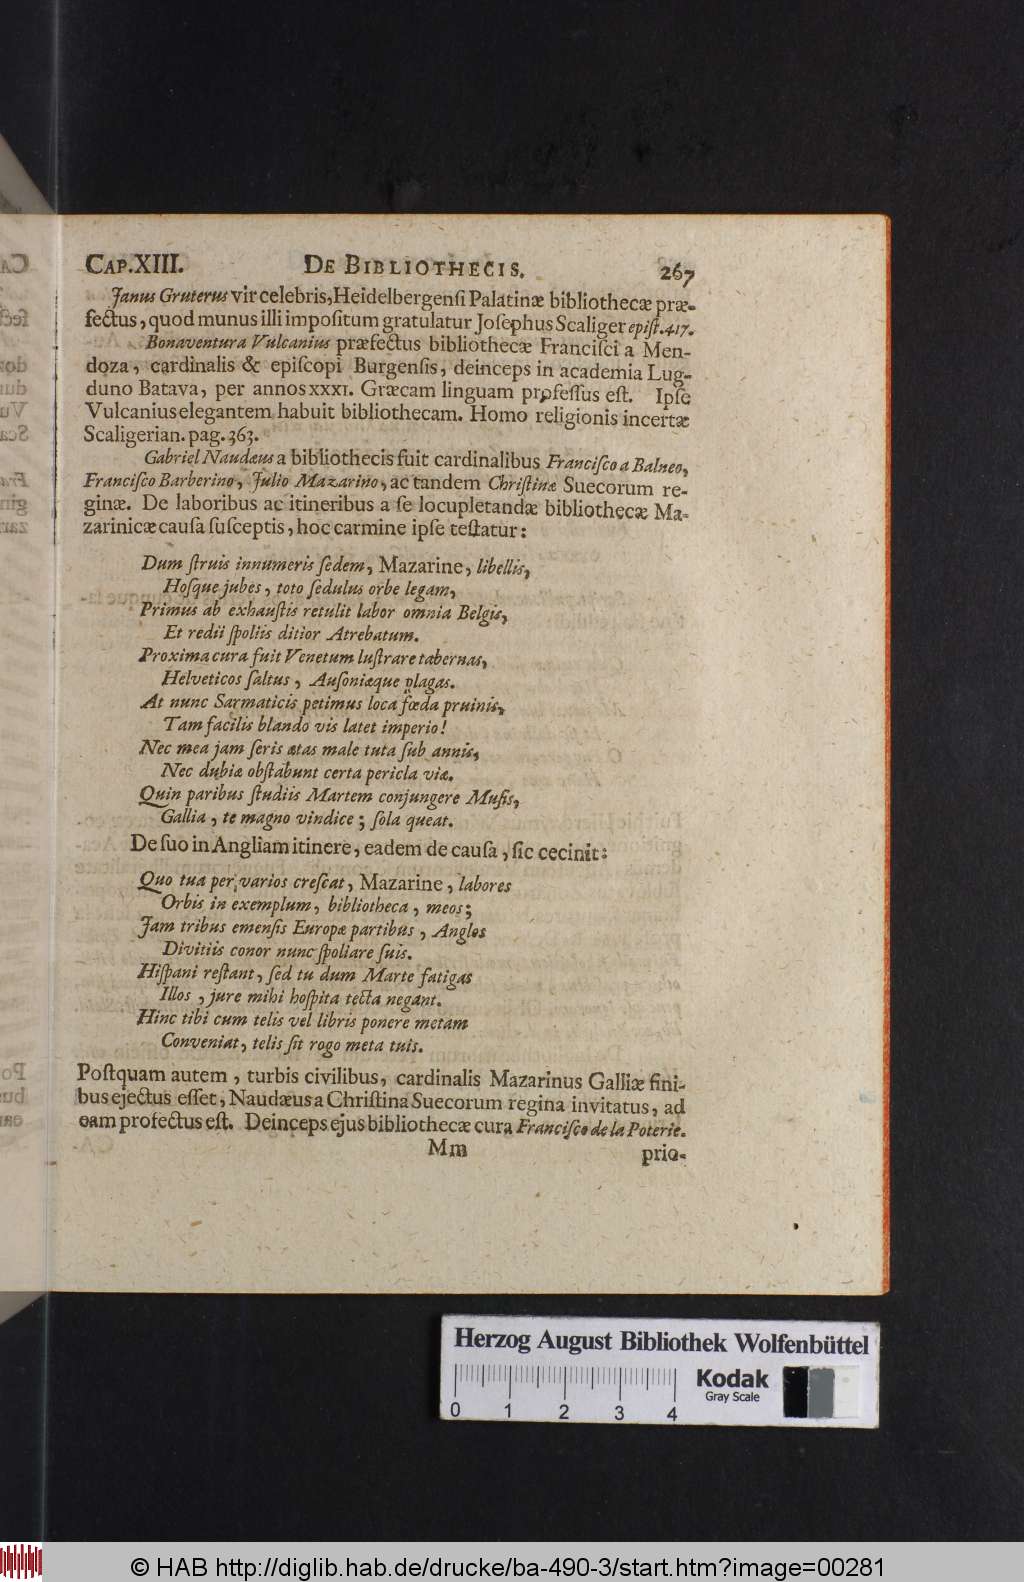 CAP.XIII. DE BIBLIOTHECIS. 267
Janus Gruterus vir celebris, Heidelbergenſi Palatinæ bibliothecæ præ-
fectus, quod munus illi impoſitum gratulatur Joſephus Scaliger epiſt. 417.
Bonaventura Vulcanius præfectus bibliothecæ Franciſci a Men-
doza, cardinalis & epiſcopi Burgenſis, deinceps in academia Lug-
duno Batava, per annos XXXI. Græcam linguam profeſſus eſt. Ipſe
Vulcanius elegantem habuit bibliothecam. Homo religionis incertæ
Scaligerian. pag. 363.
Gabriel Naudæus a bibliothecis fuit cardinalibus Franciſco a Balneo,
Franciſco Barberino, Julio Mazarino, ac tandem Chriſtinæ Suecorum re-
ginæ. De laboribus ac itineribus a ſe locupletandæ bibliothecæ Ma-
zarinicæ cauſa ſuſceptis, hoc carmine ipſe teſtatur:
Dum ſtruis innumeris ſedem, Mazarine, libellis,
Hoſque jubes, toto ſedulus orbe legam,
Primus ab exhauſtis retulit labor omnia Belgis,
Et redii ſpoliis ditior Atrebatum.
Proxima cura fuit Venetum luſtrare tabernas,
Helveticos ſaltus, Auſoniæque plagas.
At nunc Sarmaticis petimus loca fœda pruinis,
Tam facilis blando vis latet imperio!
Nec mea jam ſeris ætas male tuta ſub annis,
Nec dubiæ obſtabunt certa pericla viæ.
Quin paribus ſtudiis Martem conjungere Muſis,
Gallia, te magno vindice; ſola queat.
De ſuo in Angliam itinere, eadem de cauſa, ſic cecinit:
Quo tua per varios creſcat, Mazarine, labores
Orbis in exemplum, bibliotheca, meos;
Jam tribus emenſis Europæ partibus, Anglos
Divitiis conor nunc ſpoliare ſuis.
Hiſpani reſtant, ſed tu dum Marte fatigas
Illos, jure mihi hoſpita tecta negant.
Hinc tibi cum telis vel libris ponere metam
Conveniat, telis ſit rogo meta tuis.
Poſtquam autem, turbis civilibus, cardinalis Mazarinus Galliæ fini-
bus ejectus eſſet, Naudæus a Chriſtina Suecorum regina invitatus, ad
eam profectus eſt. Deinceps ejus bibliothecæ cura Franciſco de la Poterie.
Mm prio-
Herzog August Bibliothek Wolfenbüttel
Kodak
Gray Scale
0 1 2 3 4
© HAB http://diglib.hab.de/drucke/ba-490-3/start.htm?image=00281